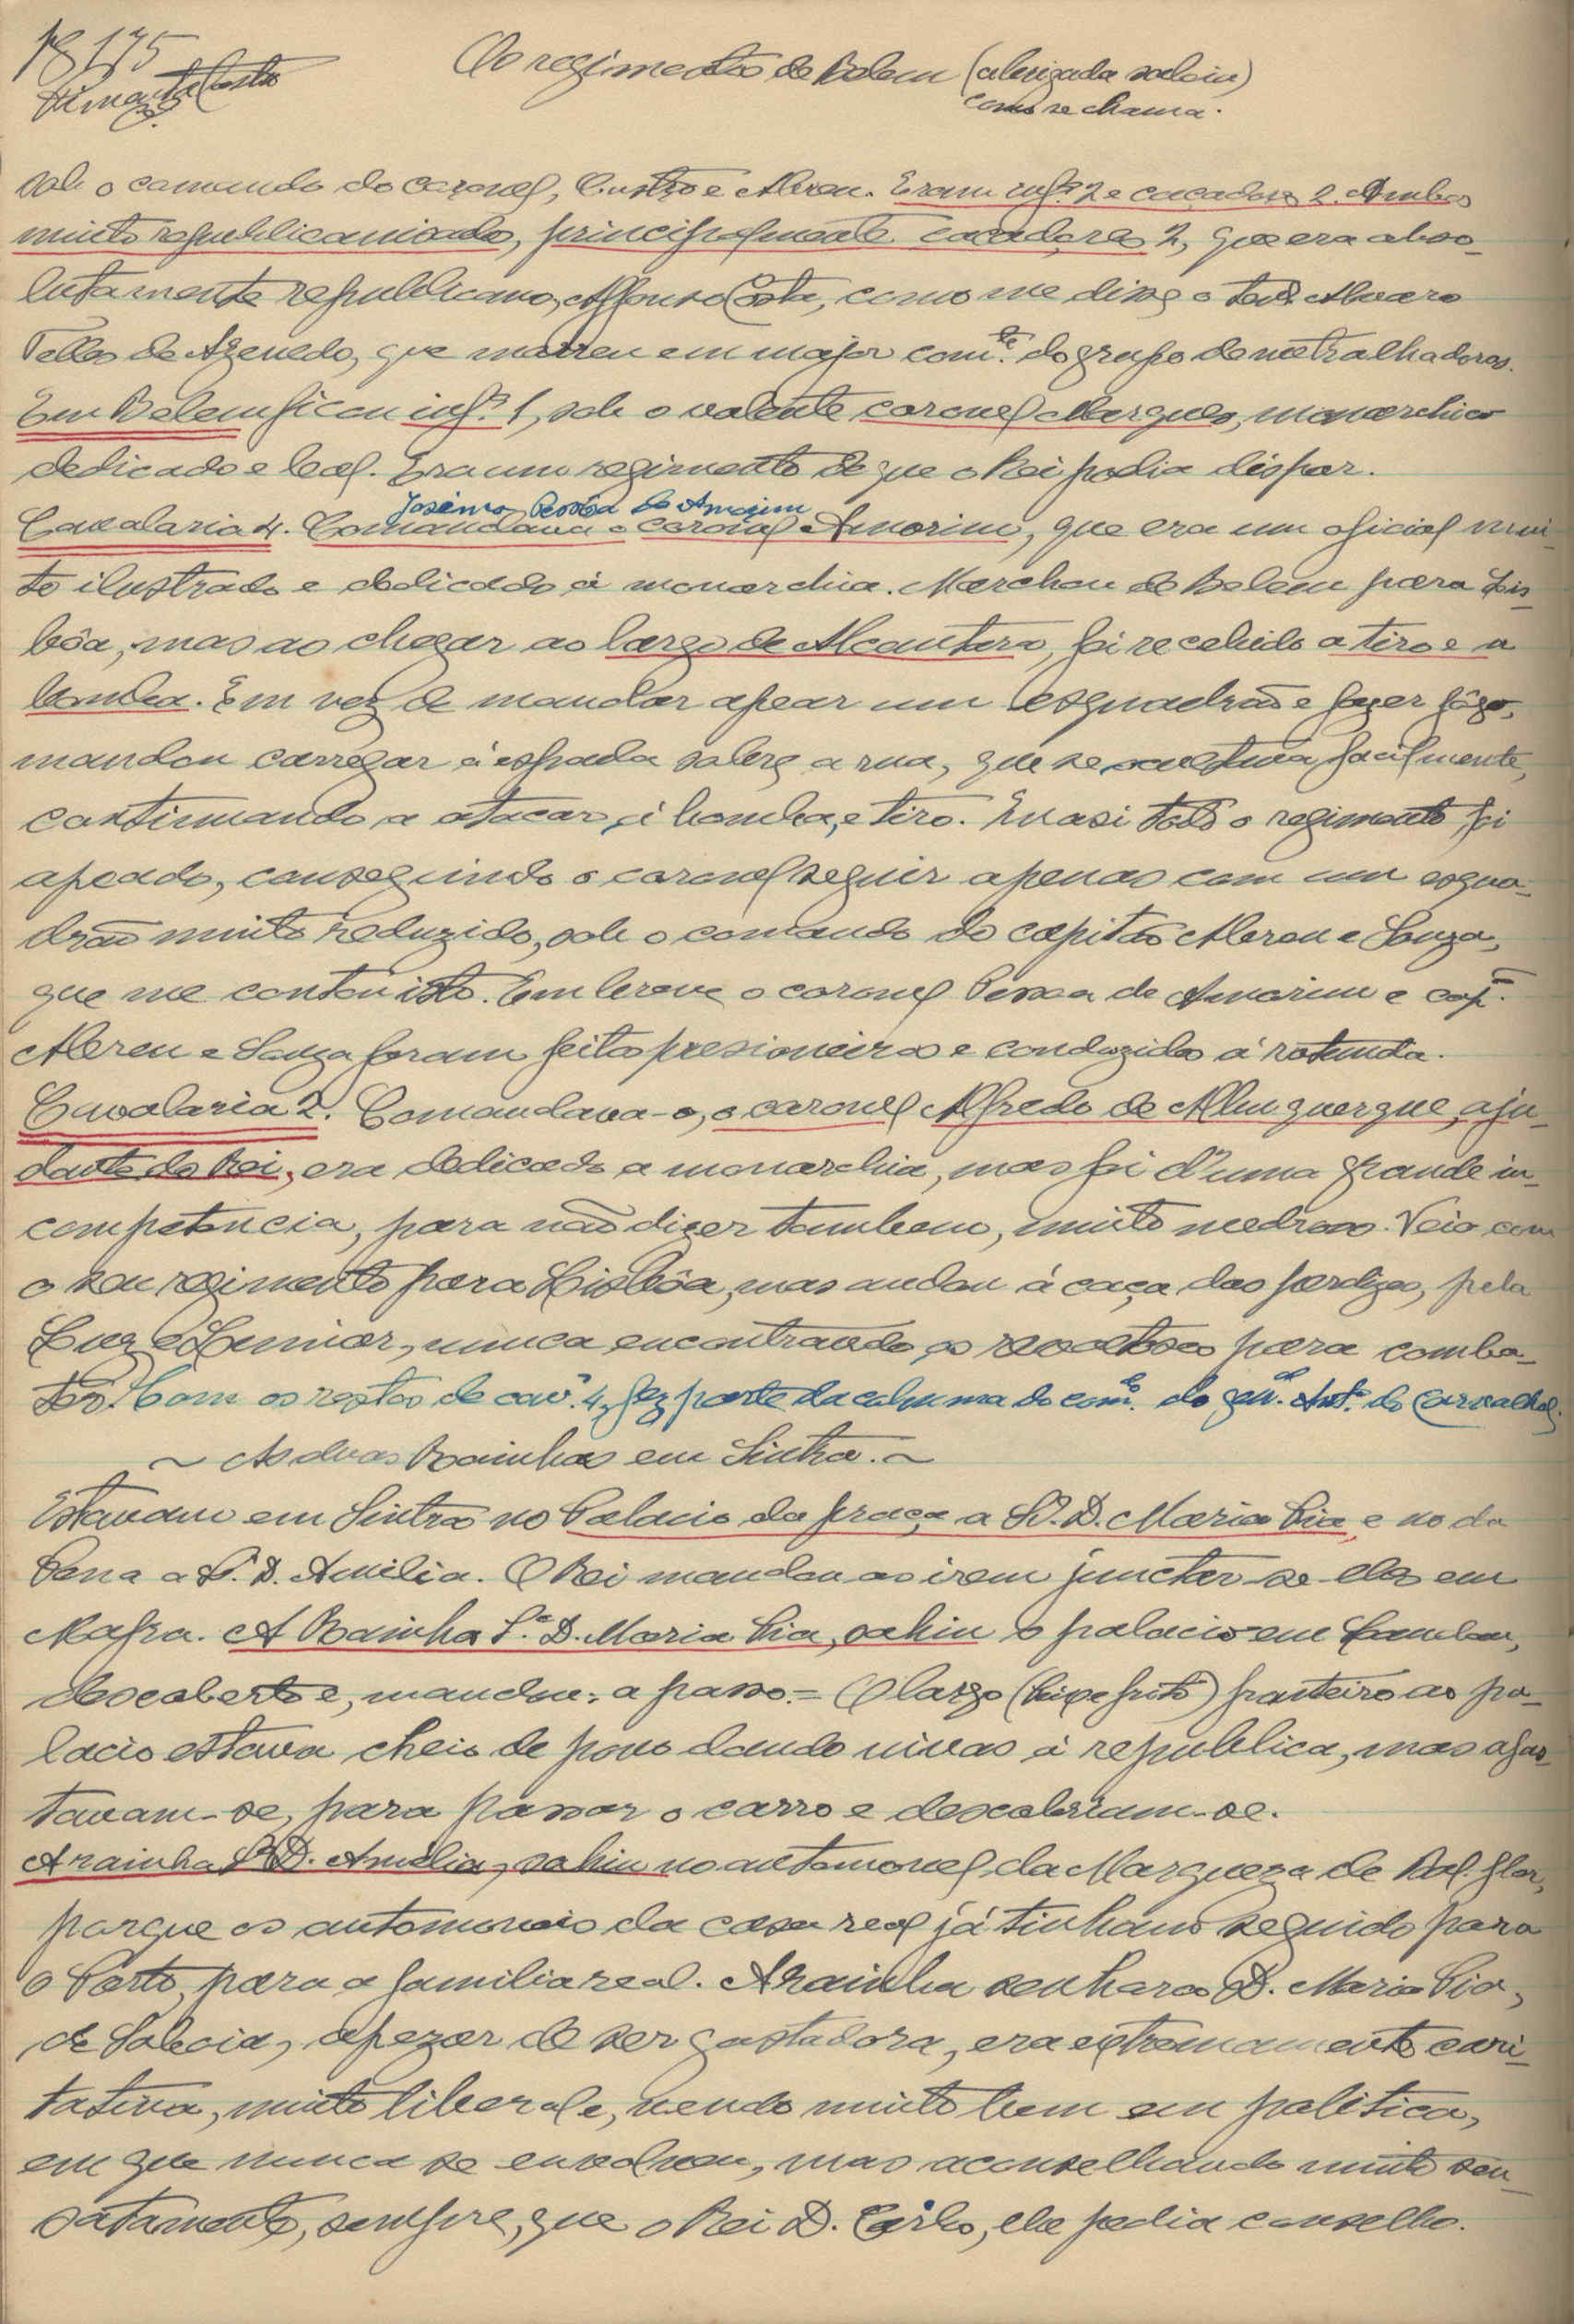 175
Os regimentos de Belem (alcunhada saloia)
como se chama.
sob o comando do coronel, Castro e Abreu. Eram infª 2 e caçadores 2. Ambos
muito republicanisados, principalmente caçadores 2, que era abso-
lutamente republicano, Affonso Costa, como me disse o tenᵗᵉ Alvaro
Telles de Azevedo, que morreu em major comᵗᵉ do grupo de metralhadoras.
Em Belem ficou infª 1, sob o valente coronel Marques, monarchico
dedicado e leal. Era um regimento de que o Rei podia dispor.
Pessôa de Amorim
Cavalaria 4. Comandava o coronel Amorim, que era um oficial mui-
to ilustrado e dedicado á monarchia. Marchou de Belem para Lis-
bôa, mas ao chegar ao largo de Alcantara, foi recebido a tiro e a
bomba. Em vez de mandar apear um esquadrão e fazer fôgo,
mandou carregar á espada sobre a rua, que se ocultava facilmente,
continuando a atacar, á bomba, e tiro. Quasi todo o regimento foi
apeado, conseguindo o coronel seguir apenas com um esqua-
drão muito reduzido, sob o comando do capitão Abreu e Souza,
que me contou isto. Em breve o coronel Pessoa de Amorim e capᵐ.
Abreu e Souza foram feitos presioneiros e conduzidos á rotunda.
Cavalaria 2. Comandava-o, o coronel Alfredo de Albuquerque, aju-
dante do Rei, era dedicado a monarchia, mas foi d'uma grande in-
competencia, para não dizer tambem, muito medroso. Veio com
o seu regimento para Lisbôa, mas andou á caça das perdizes, pela
Luz e Lumiar, nunca encontrando os revoltosos para comba-
tes. Com os restos de cavª 4, fez parte da coluna do comᵈᵒ do genᵃˡ Antº. de Carvalhal.
~ As duas Rainhas em Sintra. ~
Estavam em Sintra no Palacio da praça a Sª. D. Maria Pia e no da
Pena a Sª. D. Amelia. O Rei mandou as irem junctar-se-eles em
Mafra. A Rainha Sª. D. Maria Pia, sahiu o palacio em landau,
descoberto e, mandou: a passo. = O largo (peixe frito) fronteiro ao pa-
lacio estava cheio de povo dando vivas á republica, mas afas-
tavam-se, para passar o carro e descobriam-se.
A rainha Sª D. Amélia, sahiu no automovel da Marqueza de Bel flor,
porque os automoveis da casa real já tinham seguido para
o Porto, para a familia real. A rainha senhora D. Maria Pia,
de Saboia, apezar de ser gastadora, era extremamente cari-
tativa, muito liberal e, vendo muito bem em politica,
em que nunca se envolveu, mas aconselhando muito sen-
satamente, sempre, que o Rei D. Carlos, ele pedia conselho.